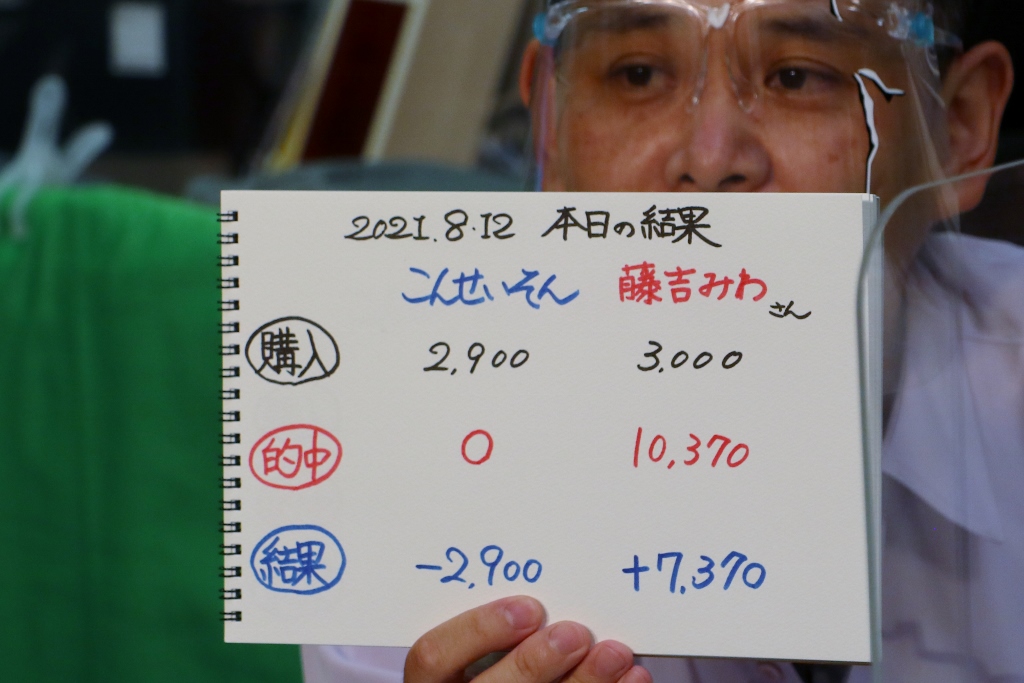 2021.8.12 本日の結果
こんせいそん 藤吉みわさん
購入 2,900 3,000
的中 0 10,370
結果 -2,900 +7,370